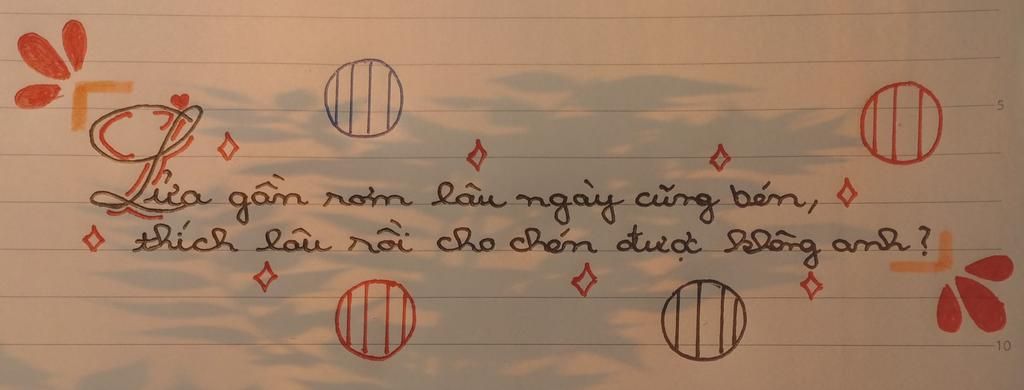 Lửa gần rơm lâu ngày cũng bén,
thích lâu rồi cho chén được không anh?
5
10